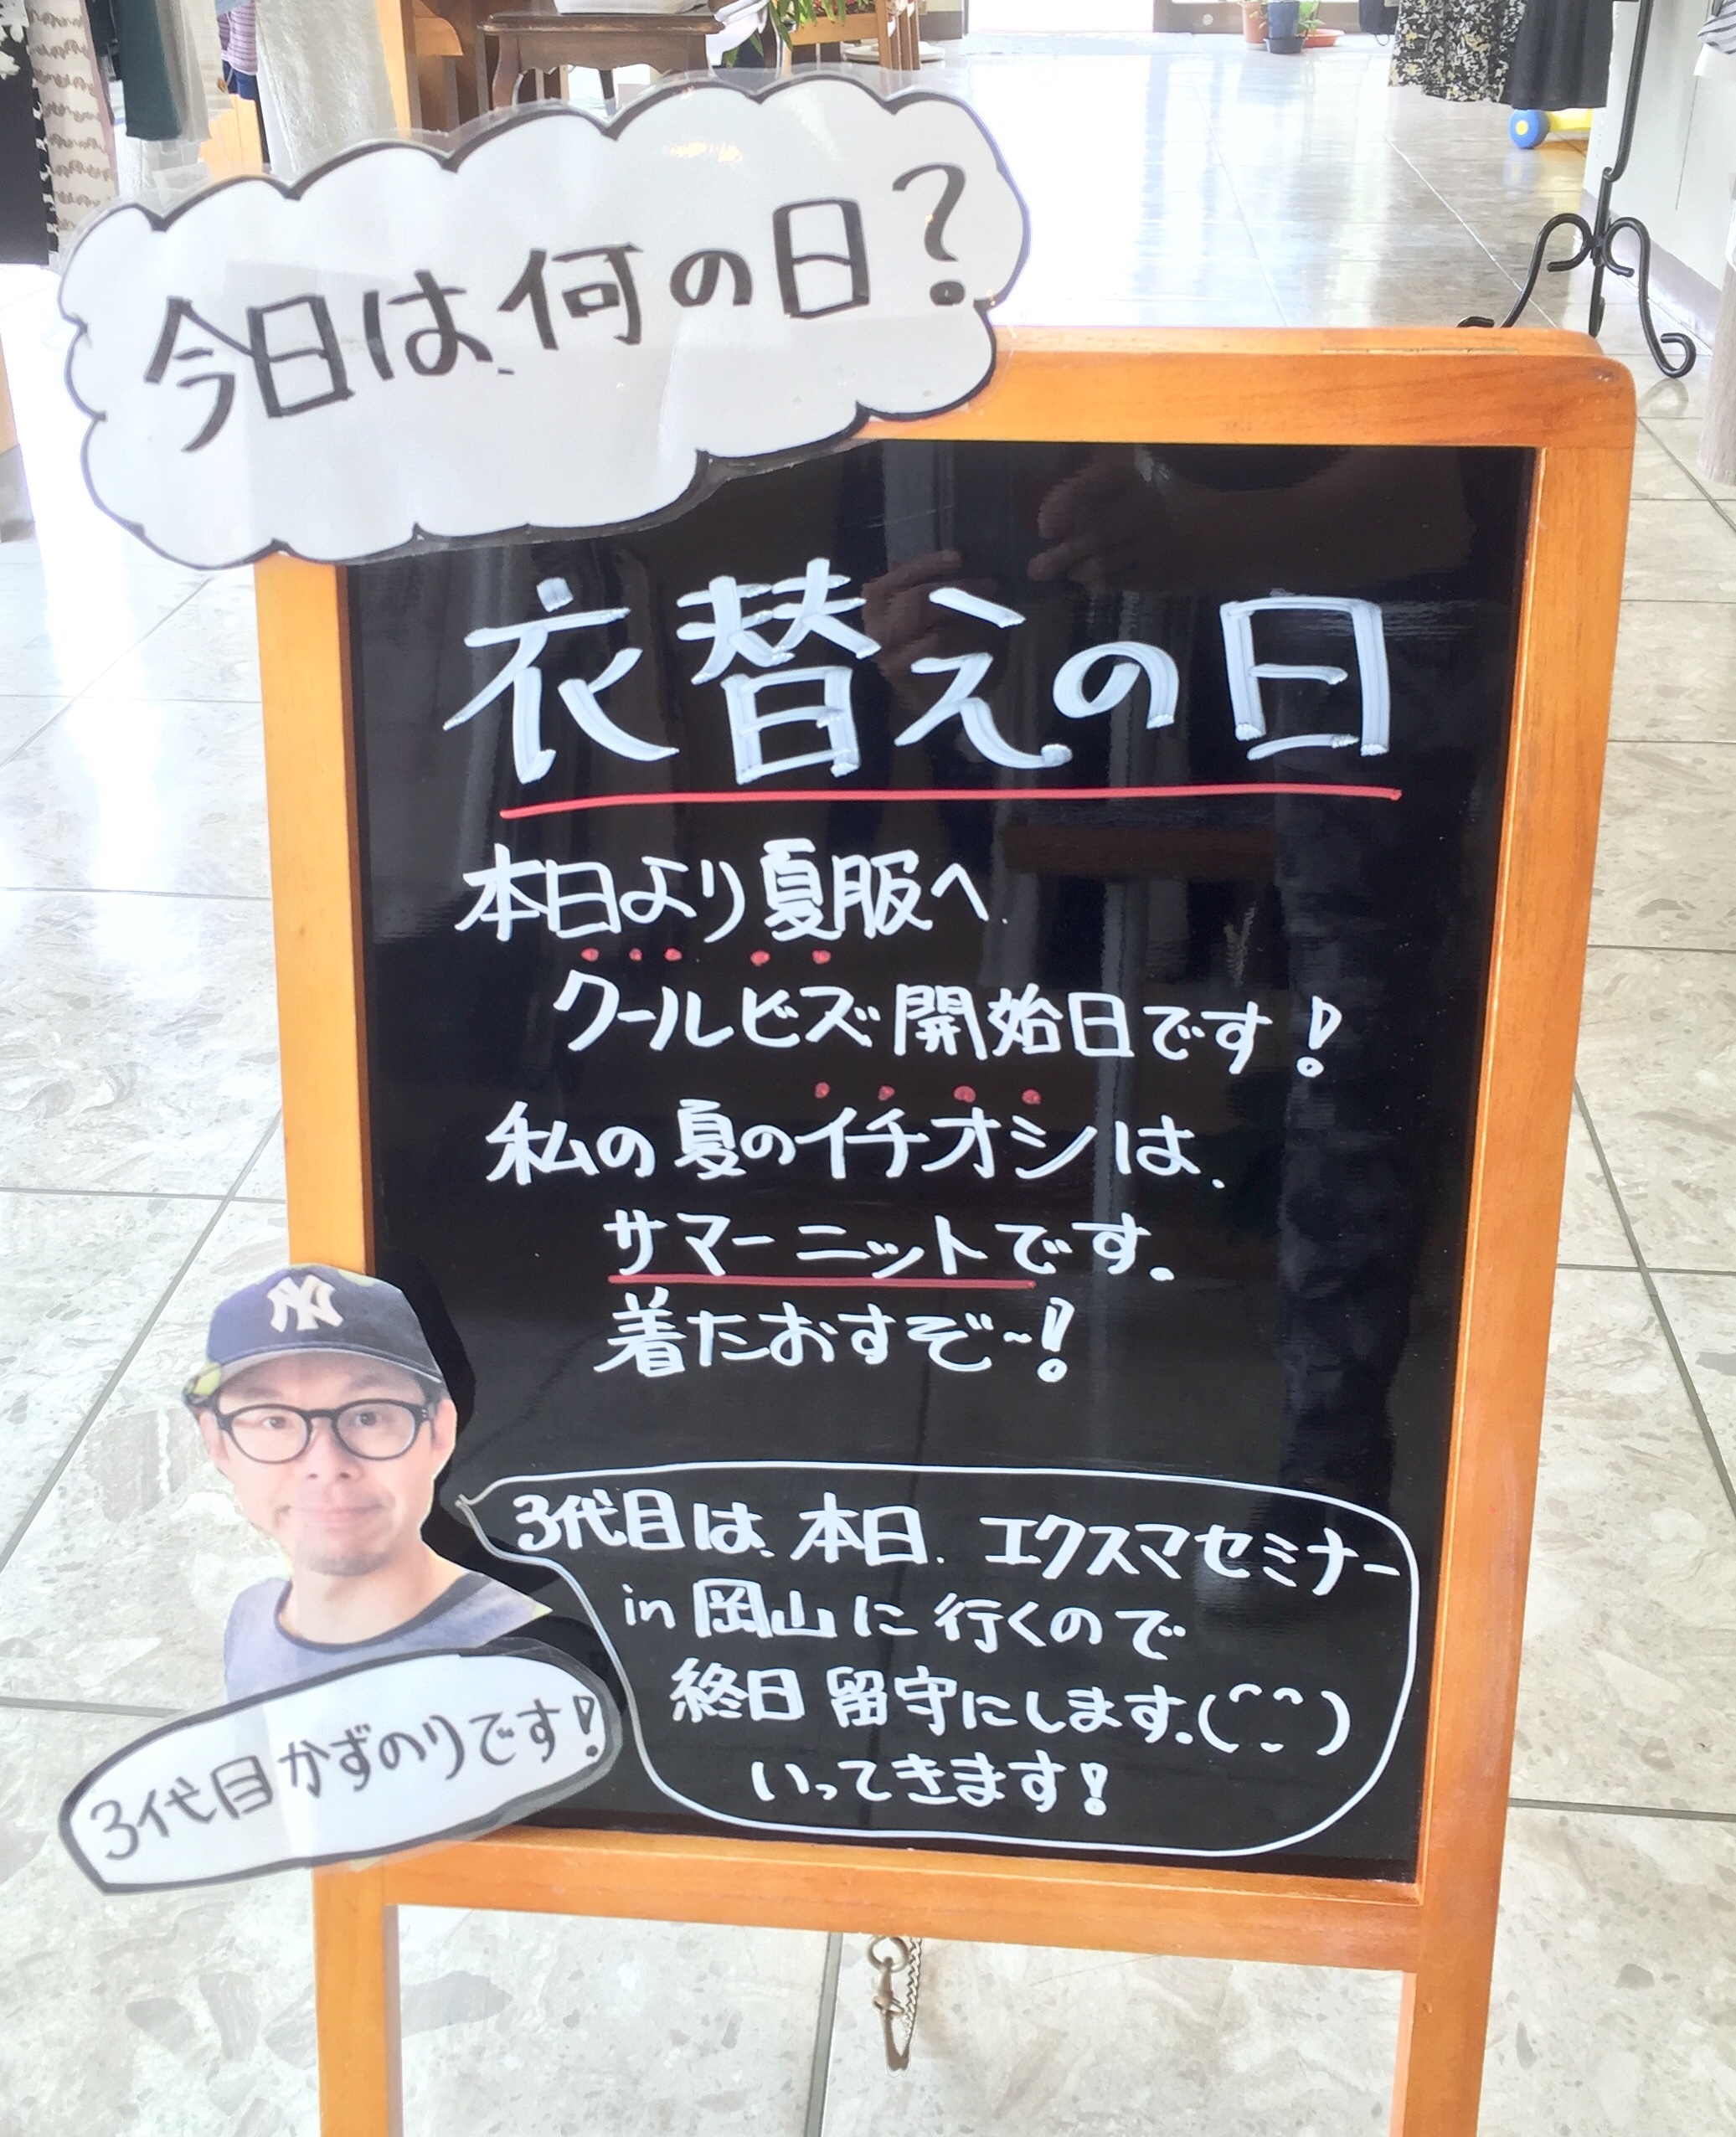 今日は、何の日?
衣替えの日
本日より夏服へ.
クールビズ開始日です!
私の夏のイチオシは、
サマーニットです.
着たおすぞ~!
NY
3代目かずのりです!
3代目は、本日、エクスマセミナー
in 岡山に行くので
終日留守にします.(^-^)
いってきます!